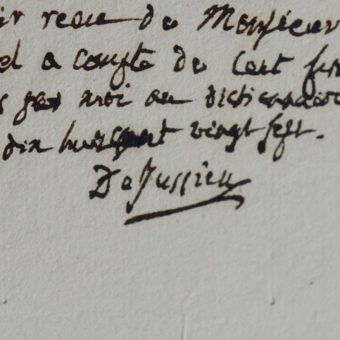 ir recu de Monsieur
el a compte de Cent fr
s par moi au dictionnaire
dix huit cent vingt sept.
DeJussieu